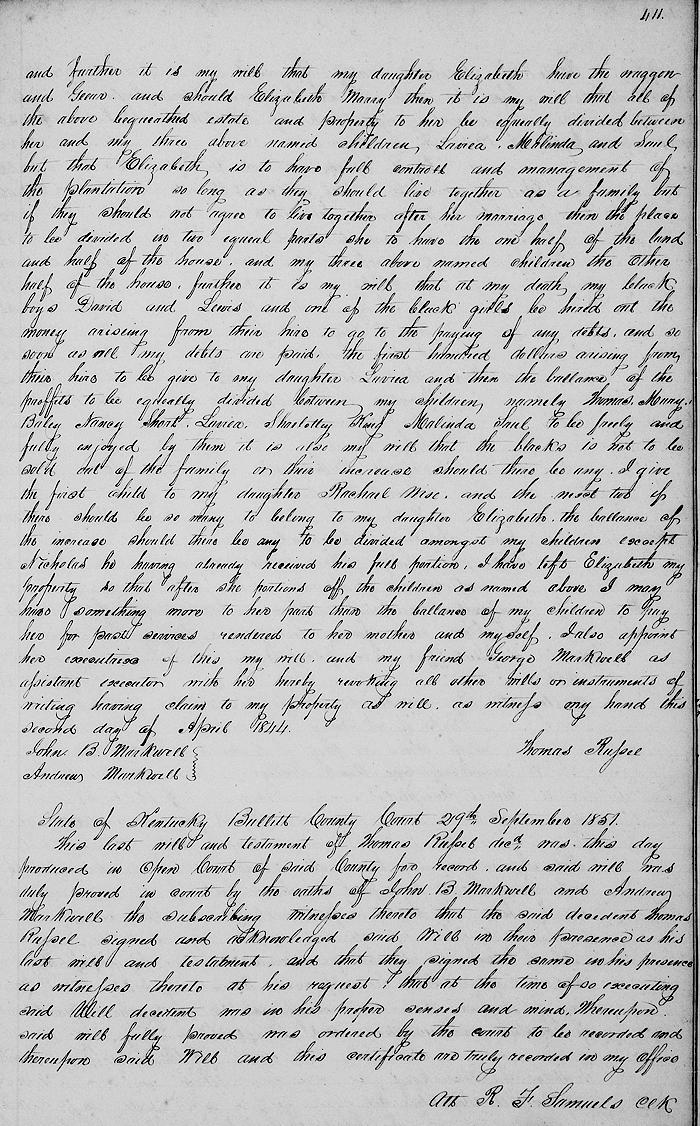 411.
and further it is my will that my daughter Elizabeth have the waggon
and Gear. and should Elizabeth Marry then it is my will that all of
the above bequeathed estate and property to her be equally divided between
her and my three above named children, Lavica, Mehlinda, and Saul,
but that Elizabeth, is to have full controll and management of
the plantation so long as they should live together as a family but
if they should not agree to live together after her marriage then the place
to be divided in two equeal parts she to have the one half of the land
and half of the house. and my three above named children the other
half of the house. further it is my will that at my death, my black
boys David and Lewis and one of the black girls be hired out the
money ariseing from their hire to go to the paying of any debts. and so
soon as all my debts are paid. the first hundred dollers arising from
their hire to be give to my daughter Lavica and then the ballance of the
proffits to be equeally divided between my children, namely Thomas. Mary.
Baley Nancy Short. Lavica, Sharlottey King Malinda Saul to be freely and
fully enjoyed by them it is also my will that the blacks is not to be
sold out of the family or their increase should there be any. I give
the first child to my daughter Rachael Wise. and the next two if
there should be so many to belong to my daughter Elizabeth. the ballance of
the increase should there be any to be divided amongst my children except
Nicholas he having already received his full portion. I have left Elizabeth my
property so that after she portions off the children as named above I may
have something more to her part than the ballance of my children to pay
her for past services rendered to her mother and myself. I also appoint
her executrix of this my will. and my friend George Markwell as
assistant executor with her hereby revoking all other wills or instruments of
writing having claim to my property as will. as witness my hand this
second day of April 1844.
John. B. Markwell Thomas Russel
Andrew Markwell
State of Kentucky Bullitt County Court 29th September 1851.
This last will and testament of Thomas Russel decd was this day
produced in Open Court of said County for record. and said will was
duly proved in court by the oaths of John B Markwell and Andrew
Markwell the subscribing witnesses thereto that the said decedent Thomas
Russel signed and acknowledged said Will in their presence as his
last will and testament. and that they signed the same in his presence
as witnesses thereto at his request & that at the time of so executing
said Will decedent was in his proper senses and mind. Whereupon.
said will fully proved was ordered by the court to be recorded and
thereupon said Will and this certificate are truly recorded in my office
Att R. F. Samuels Clk